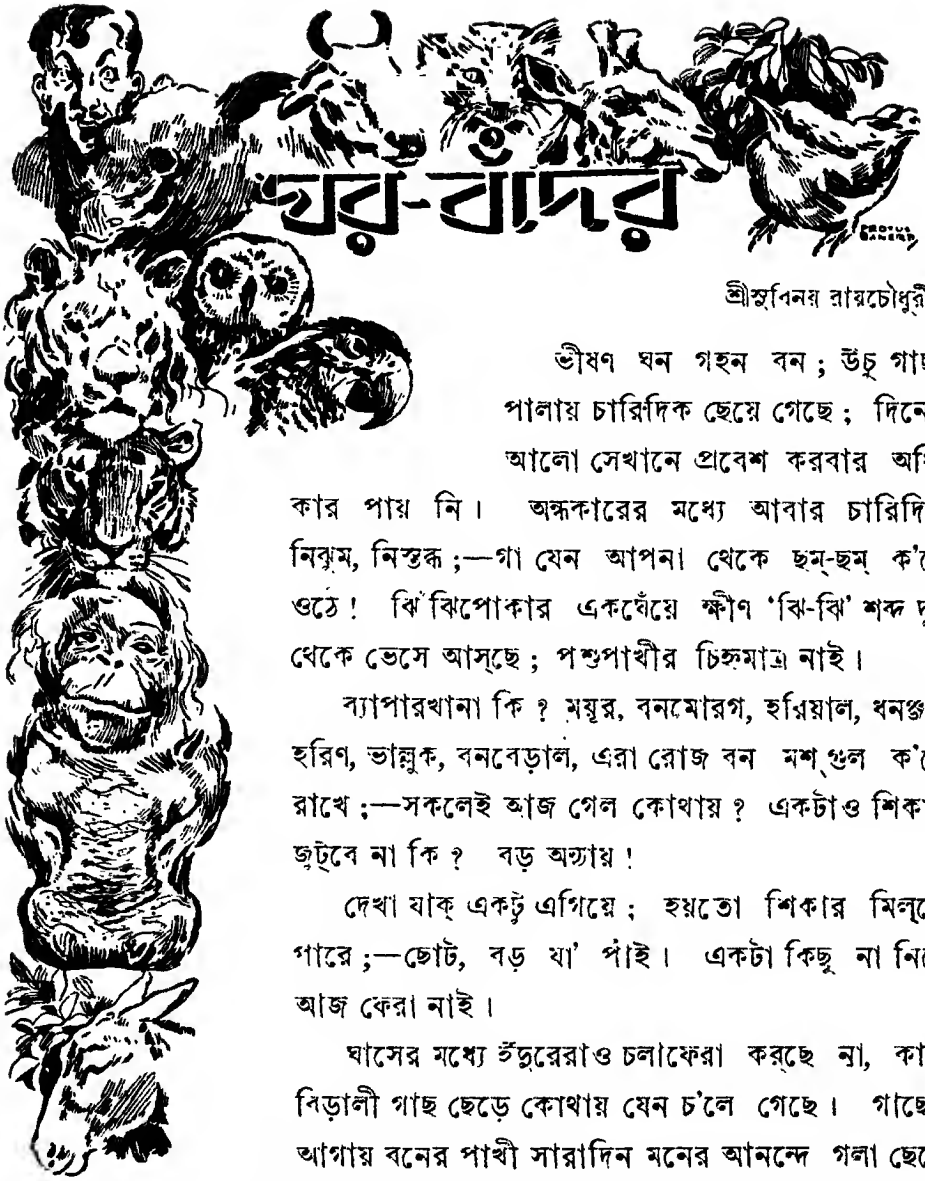 ঘর-বাঁদর
PROTUL BANERJI
শ্রীসুবিনয় রায়চৌধুরী
ভীষণ ঘন গহন বন ; উঁচু গাছ
পালায় চারিদিক ছেয়ে গেছে ; দিনে
আলো সেখানে প্রবেশ করবার অধি
কার পায় নি। অন্ধকারের মধ্যে আবার চারিদি
নিঝুম, নিস্তব্ধ ;—গা যেন আপনা থেকে ছম্-ছম্ ক'রে
ওঠে! ঝিঁঝিপোকার একঘেঁয়ে ক্ষীণ 'ঝি-ঝি' শব্দ দূ
থেকে ভেসে আস্‌ছে ; পশুপাখীর চিহ্নমাত্র নাই।
ব্যাপারখানা কি ? ময়ূর, বনমোরগ, হরিয়াল, ধনঞ্জ
হরিণ, ভাল্লুক, বনবেড়াল, এরা রোজ বন মশ্‌গুল ক'রে
রাখে ;—সকলেই আজ গেল কোথায় ? একটাও শিকা
জুট্‌বে না কি ? বড় অন্যায়!
দেখা যাক্ একটু এগিয়ে ; হয়তো শিকার মিল্‌তে
পারে ;—ছোট, বড় যা' পাই। একটা কিছু না নিয়ে
আজ ফেরা নাই।
ঘাসের মধ্যে ইঁদুরেরাও চলাফেরা কর্‌ছে না, কা
বিড়ালী গাছ ছেড়ে কোথায় যেন চ'লে গেছে। গাছে
আগায় বনের পাখী সারাদিন মনের আনন্দে গলা ছেড়ে